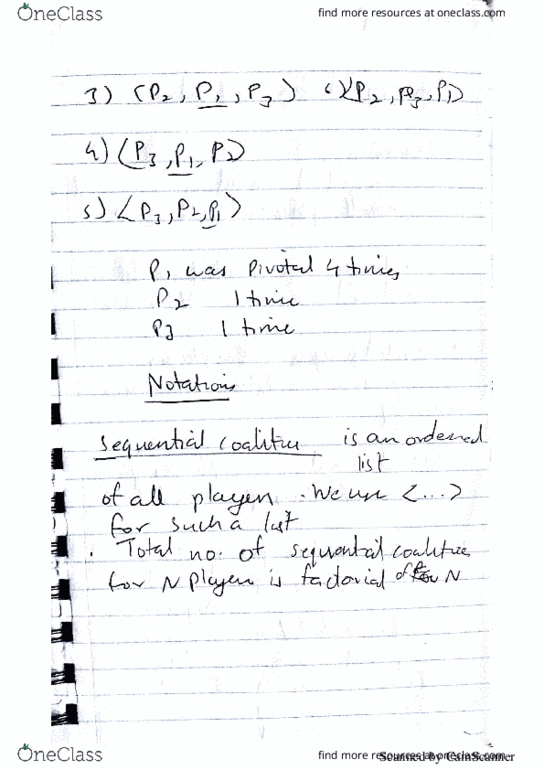 OneClass
find more resources at oneclass.com
3) (P₂, P₁, P₃) 6) ⟨P₂, P₃, P₁⟩
4) ⟨P₃, P₁, P₂⟩
5) ⟨P₃, P₂, P₁⟩
P₁ was pivotal 4 times
P₂ 1 time
P₃ 1 time
Notations
Sequential coalition is an ordered
list
of all players. We use <...>
for such a list
. Total no. of sequential coalities
for N players is factorial of N
OneClass
find more resources at oneclass.com
Scanned by CamScanner